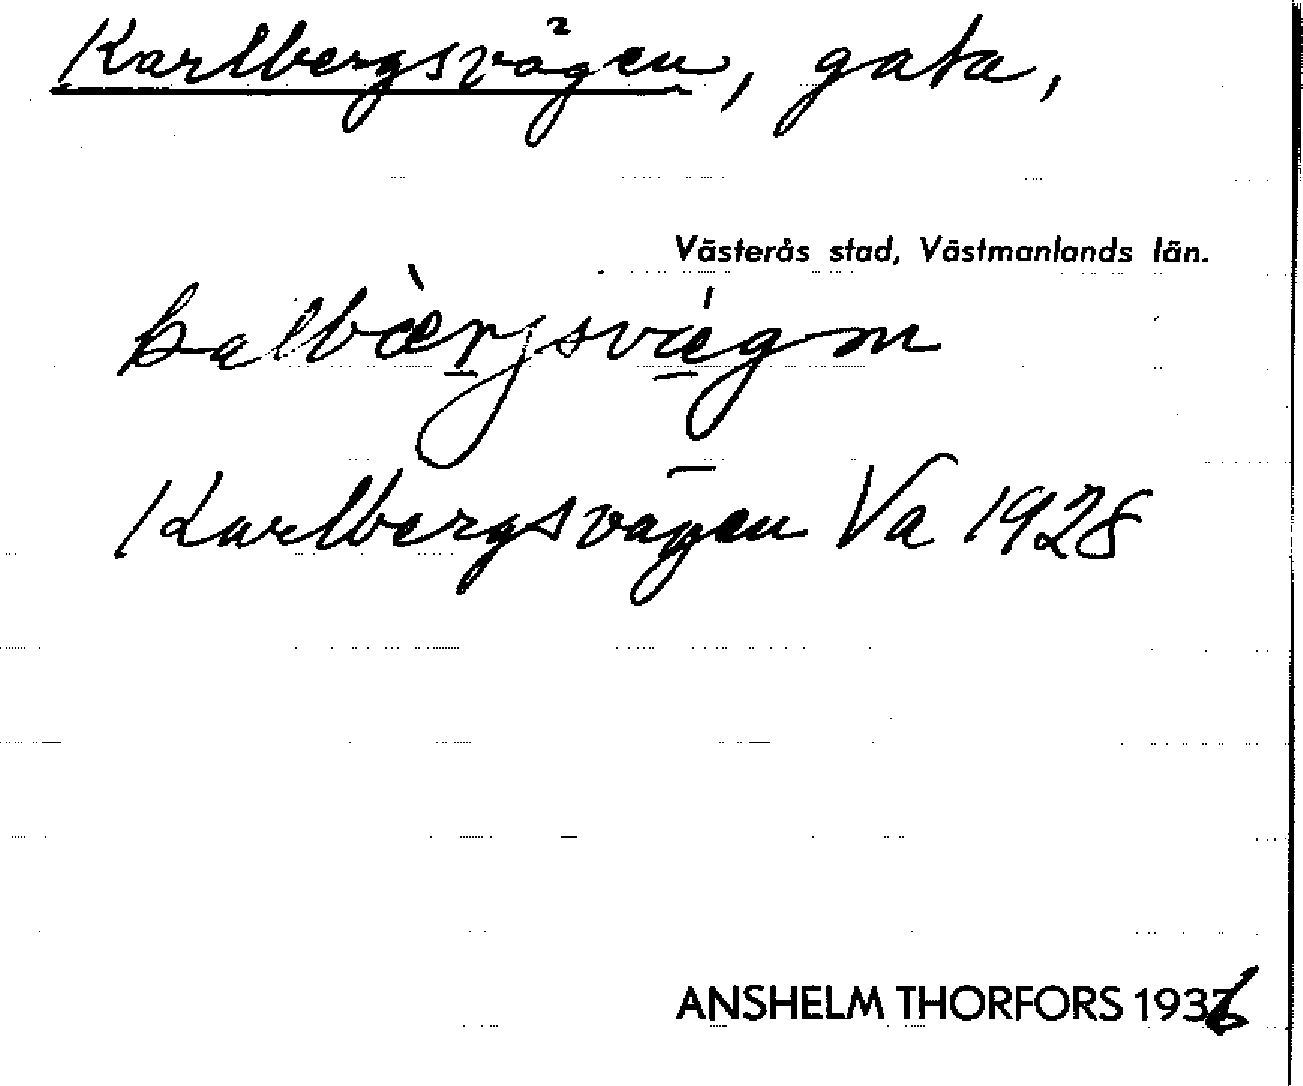 Karlbergsvägen, gata,
Västerås stad, Västmanlands län.
kalbàrjsvǽgm
Karlbergsvägen Va 1928
ANSHELM THORFORS 1936